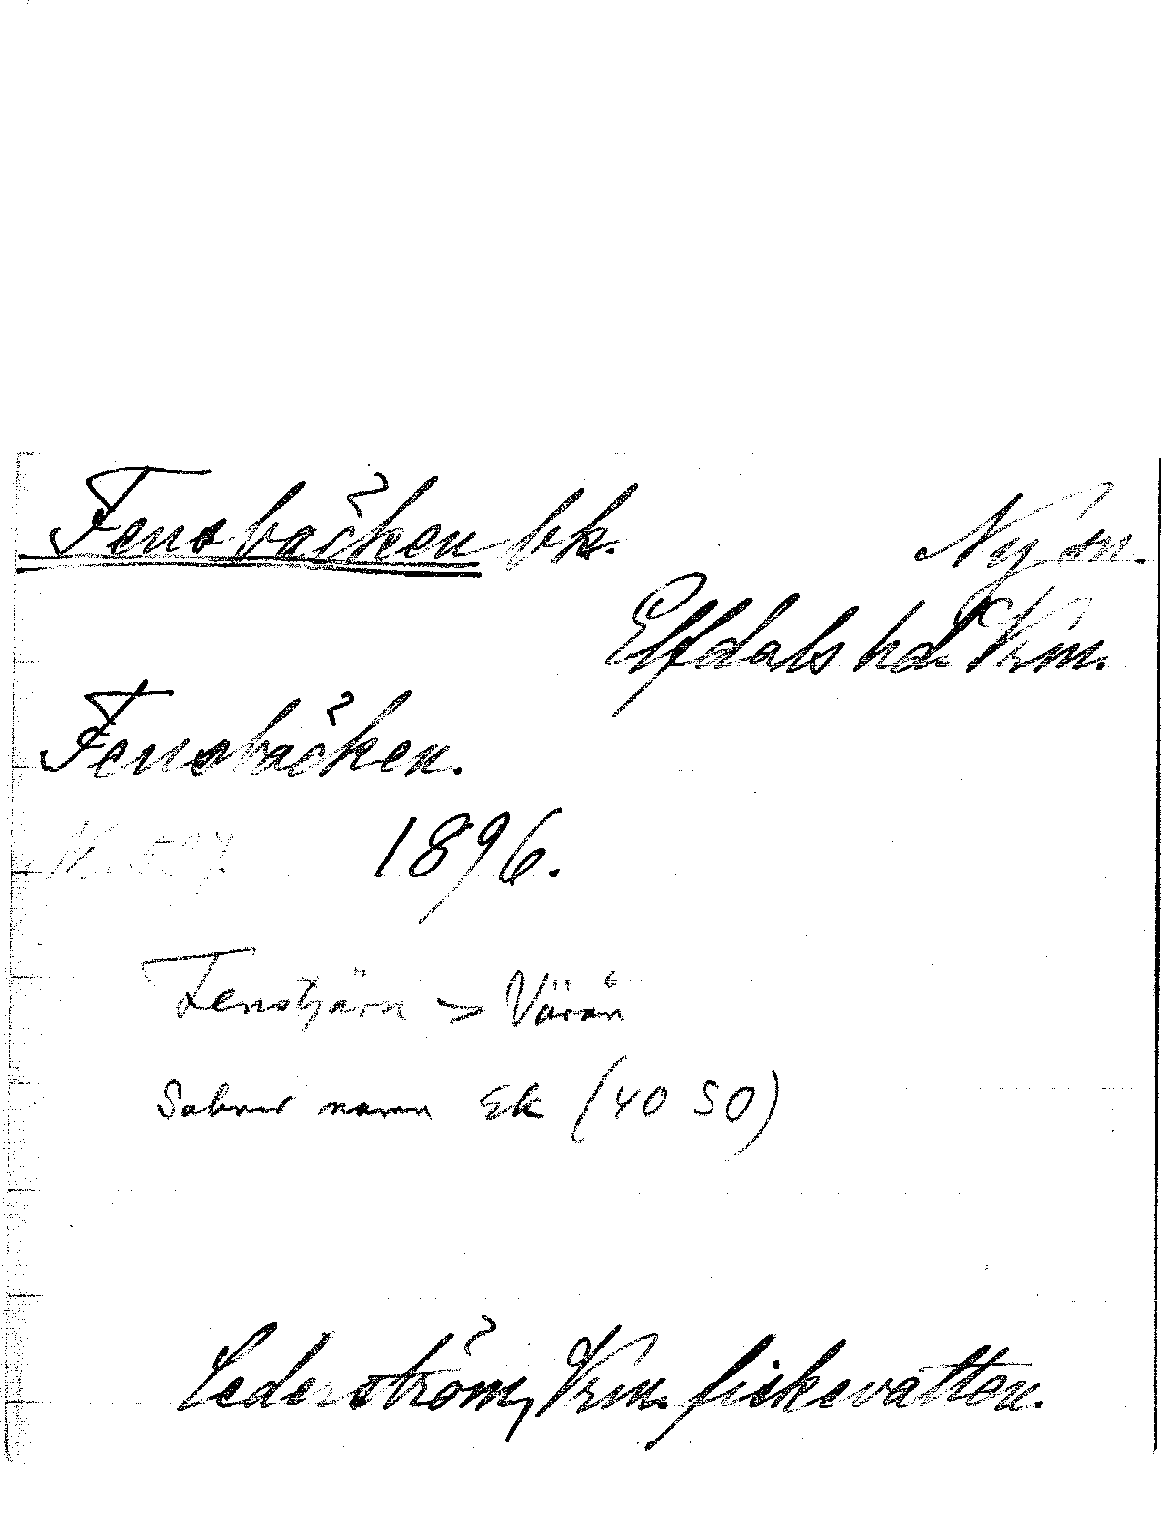 Fensbäcken bk. Ny sn.
Elfdals hd. Vrm.
Fensbäcken.
N. 597. 1896.
Fenstjärn -> Vårån
Saknar namn Ek (40 SO)
Cederström, Vrm. fiskevatten.